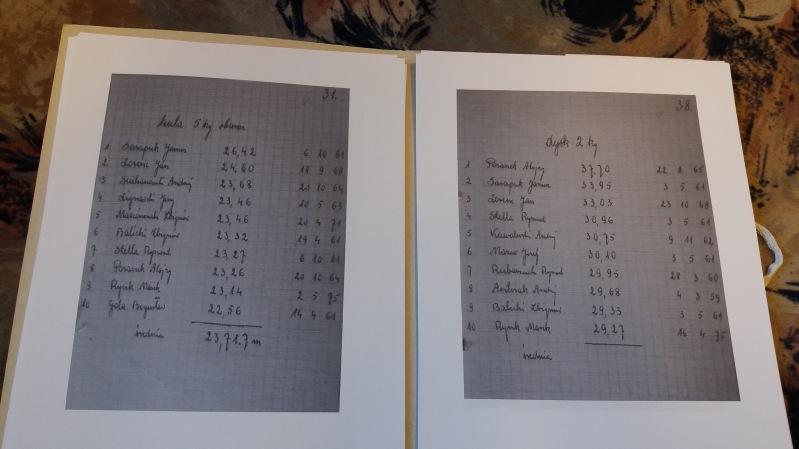 31.
kula 5 kg oburącz
1 Sarapuk Janusz 26,42 6 10 61
2 Lorenc Jan 24,60 18 9 68
3 Andrzej 23,68 20 10 64
4 Jerzy 23,46 10 5 63
5 Zbigniew 23,46 20 4 71
6 Balicki Zbigniew 23,32 19 4 61
7 Stella Ryszard 23,27 6 10 61
8 Poranek Alojzy 23,26 20 10 64
9 Rynk Marek 23,14 2 5 75
10 Gola Bogusław 22,56 14 4 61
średnia 23,71.7 m
38.
dysk 2 kg
1 Poranek Alojzy 37,70 22 8 65
2 Sarapuk Janusz 33,95 3 5 61
3 Lorenc Jan 33,03 23 10 68
4 Stella Ryszard 30,96 3 5 61
5 Kowalski Andrzej 30,75 9 11 62
6 Józef 30,10 3 5 61
7 Ryszard 29,95 28 3 60
8 Andrzej 29,68 4 3 59
9 Balicki Zbigniew 29,33 3 5 61
10 Rynk Marek 29,27 16 4 75
średnia